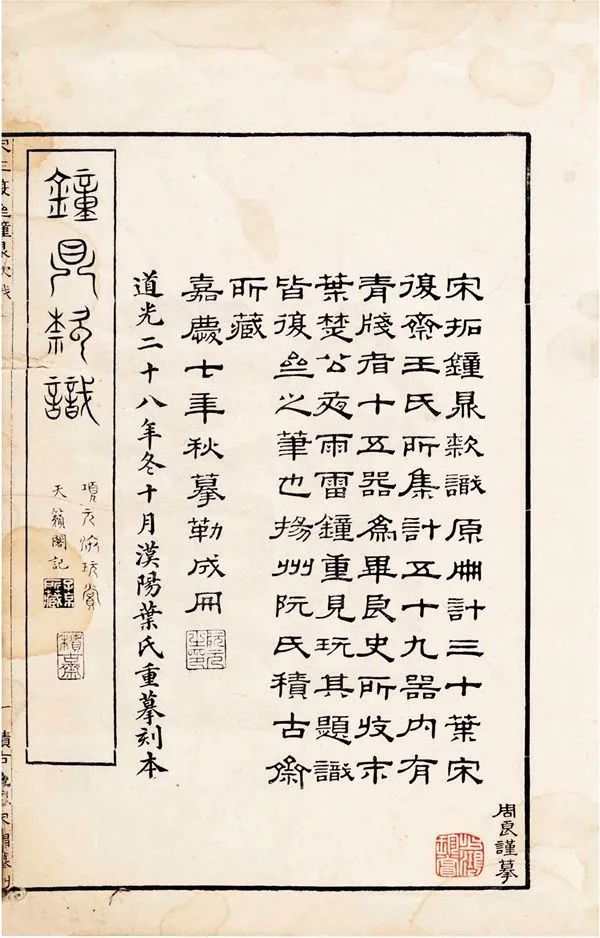 周良謹摹
宋拓鐘鼎款識原冊計三十葉宋
復齋王氏所集計五十九器內有
青牋者十五器為畢良史所收末
葉楚公夜雨雷鐘重見玩其題識
皆復亝之筆也揚州阮氏積古齋
所藏
嘉慶七年秋摹勒成冊
阮元之印
道光二十八年冬十月漢陽葉氏重摹刻本
鐘鼎款識
項元汴玩賞
天籟閣記